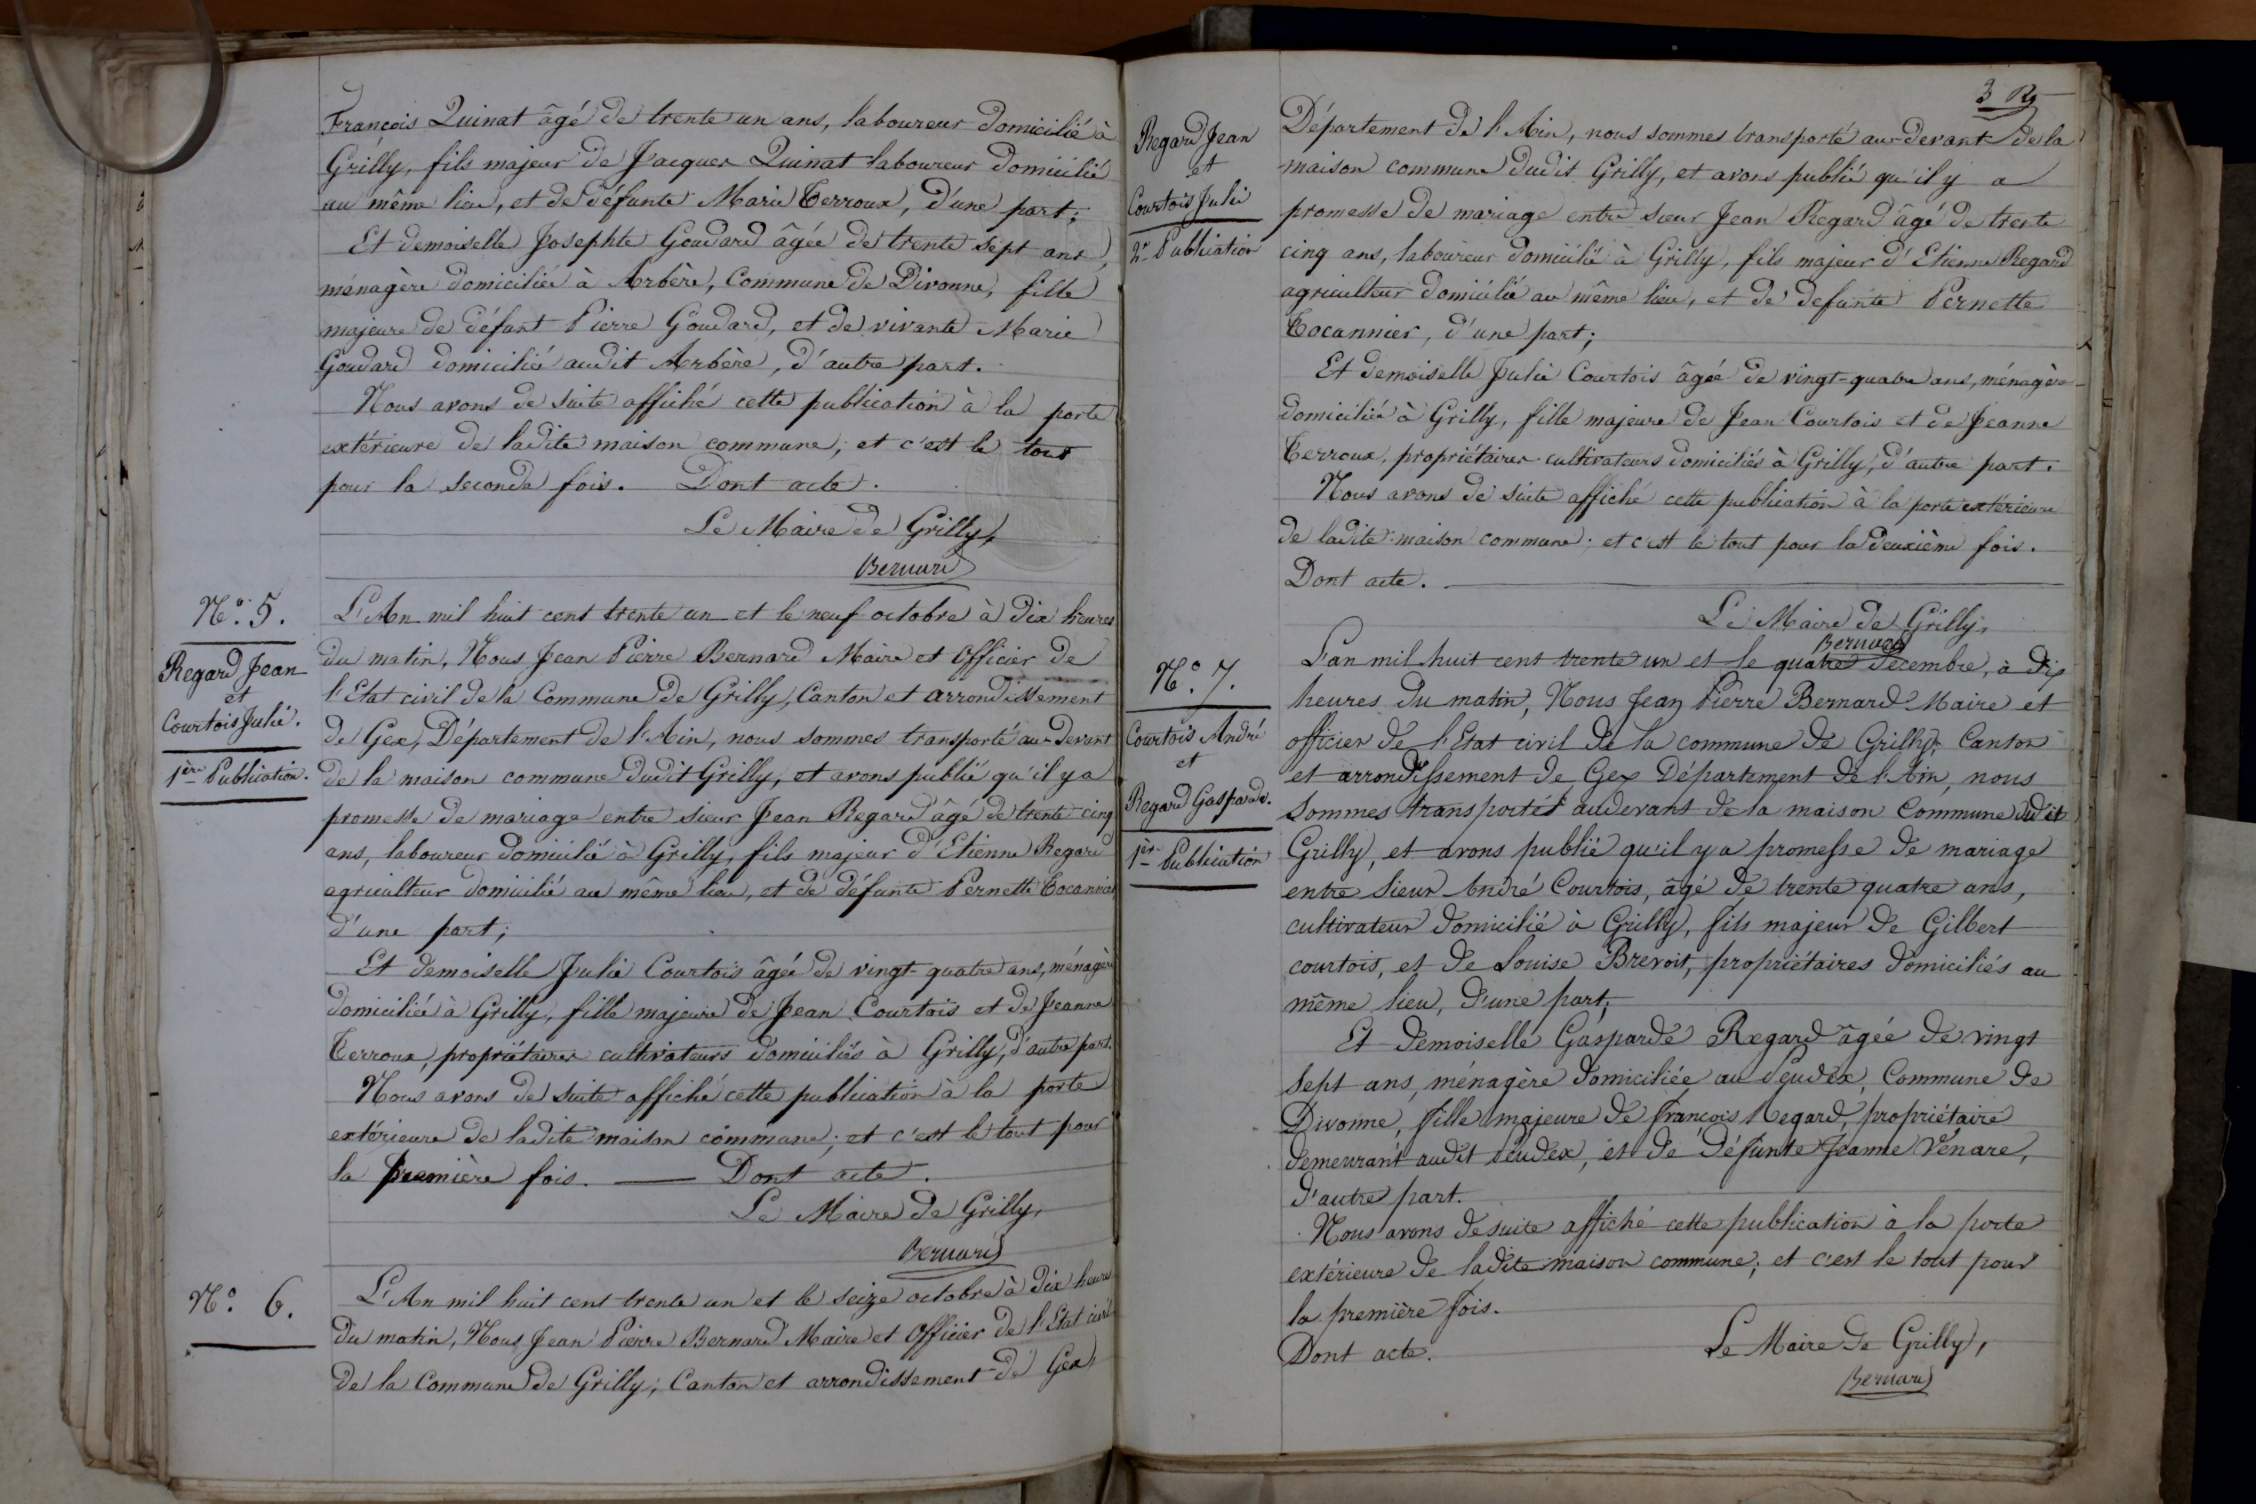 François Quinat âgé de trente un ans, laboureur domicilié à
Grilly, fils majeur de Jacques Quinat laboureur domicilié
au même lieu, et de défunte Marie Terroux, d'une part;
Et demoiselle Josephte Goudard âgée de trente sept ans,
ménagère domiciliée à Arbère, Commune de Divonne, fille
majeure de défunt Pierre Goudard, et de vivante Marie
Goudard domiciliée audit Arbère, d'autre part.
Nous avons de suite affiché cette publication à la porte
extérieure de ladite maison commune; et c'est le tout
pour la seconde fois. Dont acte.
Le Maire de Grilly,
Bernard
N.º 5.
Regard Jean
et
Courtois Julie.
1ère Publication.
L'An mil huit cent trente un et le neuf octobre à dix heures
du matin, Nous Jean Pierre Bernard Maire et Officier de
l'Etat civil de la Commune de Grilly, Canton et arrondissement
de Gex, Département de l'Ain, nous sommes transporté au-devant
de la maison commune dudit Grilly, et avons publié qu'il y a
promesse de mariage entre sieur Jean Regard âgé de trente cinq
ans, laboureur domicilié à Grilly, fils majeur d'Etienne Regard
agriculteur domicilié au même lieu, et de défunte Pernette Tocannier
d'une part;
Et demoiselle Julie Courtois âgée de vingt-quatre ans, ménagère
domiciliée à Grilly, fille majeure de Jean Courtois et de Jeanne
Terroux, propriétaires cultivateurs domiciliés à Grilly, d'autre part.
Nous avons de suite affiché cette publication à la porte
extérieure de ladite maison commune; et c'est le tout pour
la première fois. Dont acte.
Le Maire de Grilly,
Bernard
N.º 6.
L'An mil huit cent trente un et le seize octobre à dix heures
du matin, Nous Jean Pierre Bernard Maire et Officier de l'Etat civil
de la Commune de Grilly, Canton et arrondissement de Gex,
3
Regard Jean
et
Courtois Julie
2e Publication
Département de l'Ain, nous sommes transporté au-devant de la
maison commune dudit Grilly, et avons publié qu'il y a
promesse de mariage entre sieur Jean Regard âgé de trente
cinq ans, laboureur domicilié à Grilly, fils majeur d'Etienne Regard
agriculteur domicilié au même lieu, et de defunte Pernette
Tocannier, d'une part;
Et demoiselle Julie Courtois âgée de vingt-quatre ans, ménagère
domiciliée à Grilly, fille majeure de Jean Courtois et de Jeanne
Terroux, propriétaires cultivateurs domiciliés à Grilly, d'autre part.
Nous avons de suite affiché cette publication à la porte extérieure
de ladite maison commune; et c'est le tout pour la deuxième fois.
Dont acte.
Le Maire de Grilly,
Bernard
N.º 7.
Courtois André
et
Regard Gasparde.
1ère Publication
L'an mil huit cent trente un et le quatre décembre, à dix
heures du matin, Nous Jean Pierre Bernard Maire et
officier de l'Etat civil de la commune de Grilly, Canton
et arrondissement de Gex Département de l'Ain, nous
sommes transportés audevant de la maison Commune dudit
Grilly, et avons publié qu'il y a promesse de mariage
entre Sieur André Courtois, âgé de trente quatre ans,
cultivateur domicilié à Grilly, fils majeur de Gilbert
courtois, et de Louise Brevoit, propriétaires domiciliés au
même lieu, d'une part;
Et demoiselle Gasparde Regard âgée de vingt
sept ans, ménagère domiciliée au Commune de
Divonne, fille majeure de François Regard, propriétaire
demeurant audit et de défunte Jeanne Vénare,
d'autre part.
Nous avons de suite affiché cette publication à la porte
extérieure de ladite maison commune; et c'est le tout pour
la première fois.
Dont acte.
Le Maire de Grilly,
Bernard